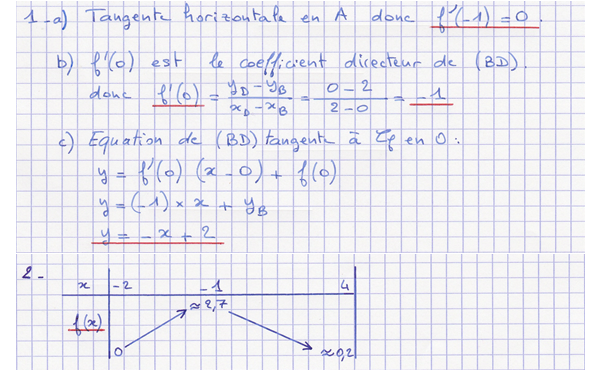 1-a) Tangente horizontale en A donc f'(-1) = 0.
b) f'(0) est le coefficient directeur de (BD).
donc f'(0) = (y_D - y_B)/(x_D - x_B) = (0 - 2)/(2 - 0) = -1
c) Equation de (BD) tangente à 𝒞f en 0 :
y = f'(0) (x - 0) + f(0)
y = (-1) × x + y_B
y = -x + 2
2-
x -2 -1 4
f(x) 0 ≈2,7 ≈0,2